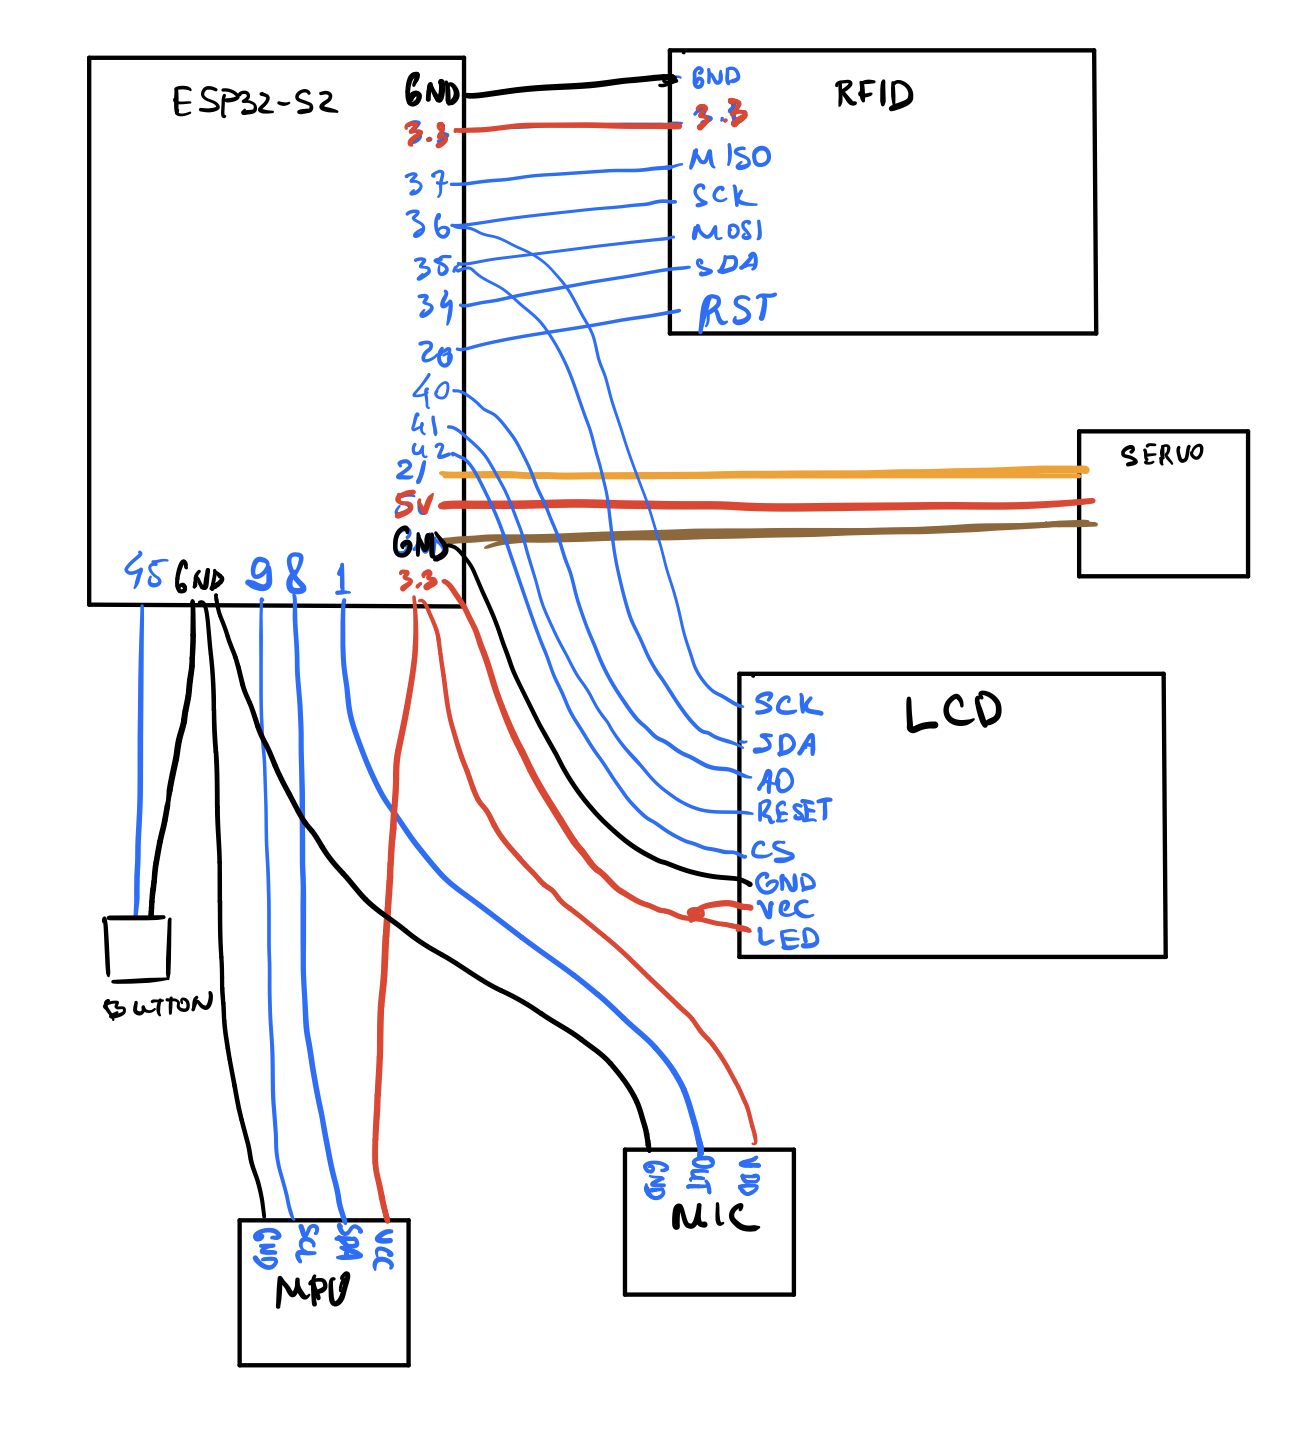 ESP32-S2
GND
3.3
37
36
35
34
20
40
41
42
21
5V
GND
3.3
45 GND 9 8 1
RFID
GND
3.3
MISO
SCK
MOSI
SDA
RST
SERVO
LCD
SCK
SDA
A0
RESET
CS
GND
VCC
LED
BUTTON
GND SCL SDA VCC
MPU
GND OUT VDD
MIC